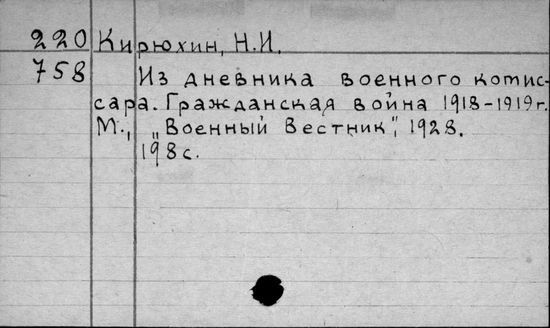 220 Кирюхин, Н.И.
758 Из дневника военного комис-
сара. Гражданская война 1918-1919г.
М., „Военный Вестник", 1928.
198с.